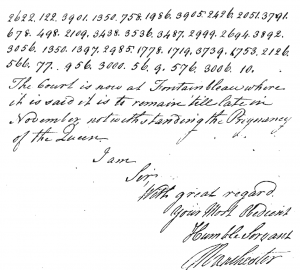 2622. 122. 3901. 1350. 758. 1986. 3905. 2426. 2051. 3791.
678. 498. 2109. 3438. 3536. 3487. 2999. 2694. 3892.
3056. 1350. 1397. 2485. 1778. 1719. 3739. 1753. 2126.
566. 77. 956. 3000. 56. 9. 576. 3006. 10.
The Court is now at Fontainbleau where
it is said it is to remain till late in
November notwithstanding the Pregnancy
of the Queen.
I am
Sir,
With great regard
Your Most Obedient
Humble Servant
Manchester